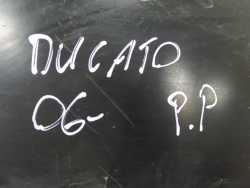 DUCATO
06- P.P